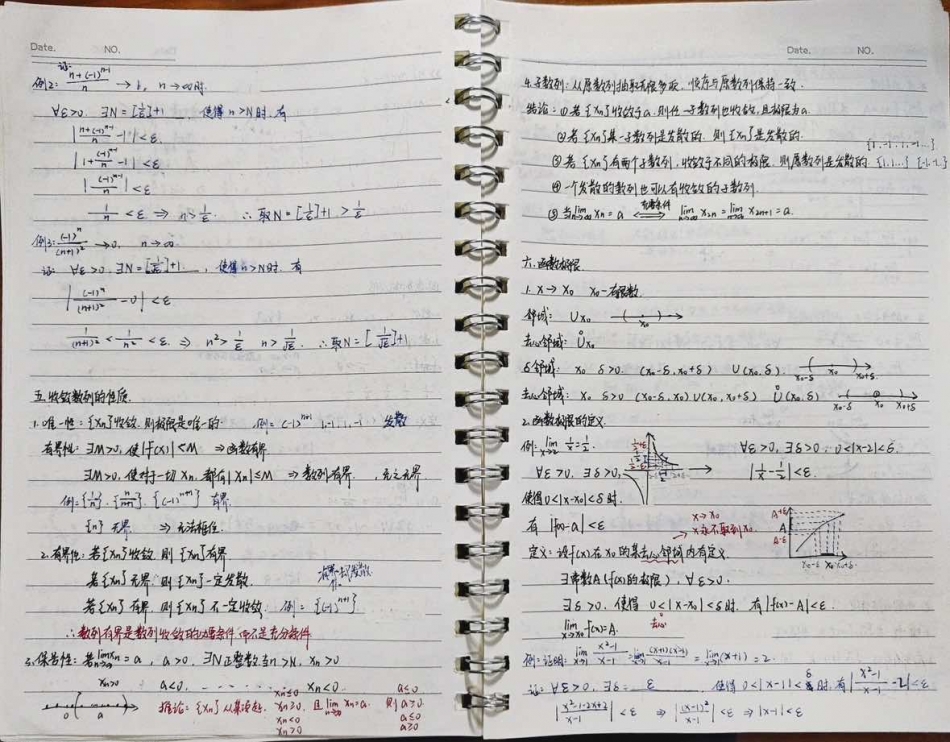 Date. NO.
例2: 证: n+(-1)ⁿ⁻¹/n → 1, n→∞时.
∀ε>0. ∃N=[1/ε]+1 使得n>N时. 有
|n+(-1)ⁿ⁻¹/n -1|<ε.
|1+(-1)ⁿ⁻¹/n -1|<ε
|(-1)ⁿ⁻¹/n|<ε
1/n <ε ⇒ n>1/ε. ∴取N=[1/ε]+1>1/ε
例3: (-1)ⁿ/(n+1)² →0, n→∞
证: ∀ε>0. ∃N=[1/√ε]+1, 使得n>N时. 有
|(-1)ⁿ/(n+1)² -0|<ε
1/(n+1)² < 1/n² <ε. ⇒ n²>1/ε n>1/√ε. ∴取N=[1/√ε]+1
五. 收敛数列的性质.
1. 唯一性: {Xn}收敛. 则极限是唯一的 例=(-1)ⁿ⁺¹ 1,-1,1,-1 发散
有界性: ∃M>0, 使|f(x)|<M ⇒函数有界
∃M>0, 使对于一切Xn, 都有|Xn|≤M ⇒数列有界
例: {1/n}. {n/n+1}. {(-1)ⁿ⁺¹} 有界.
{n} 无界 ⇒
2. 有界性: 若{Xn}收敛 则{Xn}有界
若{Xn}无界 则{Xn}一定发散.
若{Xn}有界, 则{Xn}不一定收敛 例={(-1)ⁿ⁺¹}
∴数列有界是数列收敛的必要条件 而不是充分条件
3. 保号性: 若lim n→∞ Xn=a, a>0. ∃N正整数当n>N, Xn>0
Xn>0 a<0, - - - - - - Xn<0
0 ( a ) 推论: {Xn}从某项起. Xn≥0. 且lim n→∞ Xn=a. 则a≥0
Xn≤0 a≤0
Xn<0 a≤0
Xn>0 a≥0
Date. NO.
4. 子数列: 从原数列抽取无限多项, 顺序与原数列保持一致.
结论: ①若{Xn}收敛于a. 则任一子数列也收敛, 且极限为a.
②若{Xn}某一子数列是发散的. 则{Xn}是发散的.
{1,-1,1,-1...}
③若{Xn}有两个子数列, 收敛于不同的极限, 则原数列是发散的 {1,1...}
④一个发散的数列也可以有收敛的子数列.
⑤当lim n→∞ Xn=a ⟺ 充要条件 lim n→∞ X2n=lim n→∞ X2n+1=a.
六. 函数极限.
1. X→X0 X0-有限数.
邻域: Ux0 X0
去心邻域: Ůx0
δ邻域: X0 δ>0. (X0-δ, X0+δ) U(X0,δ). X0-δ X0 X0+δ
去心邻域: X0 δ>0 (X0-δ, X0)∪(X0, X0+δ) Ů(X0,δ) X0-δ X0 X0+δ
2. 函数极限的定义
例: lim x→2 1/x=1/2. ∀ε>0, ∃δ>0, 0<|x-2|<δ.
∀ε>0, ∃δ>0, |1/x-1/2|<ε.
使得0<|x-X0|<δ时.
有|f(x)-A|<ε X→X0 → X永不取到X0 A+ε A A-ε
X0-δ X0 X0+δ
定义: 设f(x)在X0的某去心邻域内有定义
∃常数A(f(x)的极限), ∀ε>0.
∃δ>0. 使得 0<|x-X0|<δ时. 有|f(x)-A|<ε.
lim x→x0 f(x)=A. 去心
例: 证明: lim x→1 x²-1/x-1 =lim x→1 (x+1)(x-1)/x-1 = lim x→1 (x+1)=2.
证: ∀ε>0, ∃δ= ε 使得0<|x-1|<δ时, 有|x²-1/x-1 -2|<ε
|x²-1-2x+2/x-1|<ε ⇒ |(x-1)²/x-1|<ε ⇒|x-1|<ε